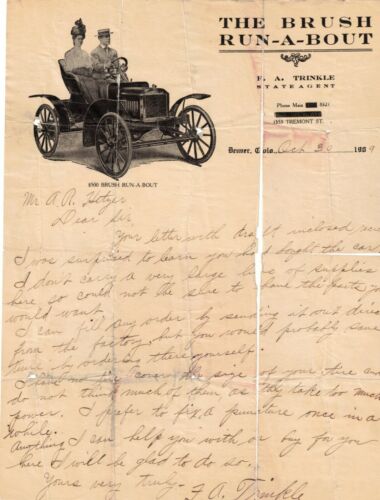 THE BRUSH
RUN-A-BOUT
F. A. TRINKLE
STATE AGENT
Phone Main 1921
1559 TREMONT ST.
Denver, Colo., Oct 30 1909
$500 BRUSH RUN-A-BOUT
Mr. A. R.
Dear Sir
Your letter with draft inclosed
I was surprised to learn you had bought the car
I don't carry a very large line of supplies
here so could not be sure to have the parts you
would want.
I can fill any order by sending it out direct
from the factory, but you would probably save
time by ordering there yourself.
I have no tire cover the size of your tire and
do not think much of them as they take too much
power. I prefer to fix a puncture once in a
while.
Anything I can help you with or buy for you
here I will be glad to do so.
Yours very truly-
F A. Trinkle